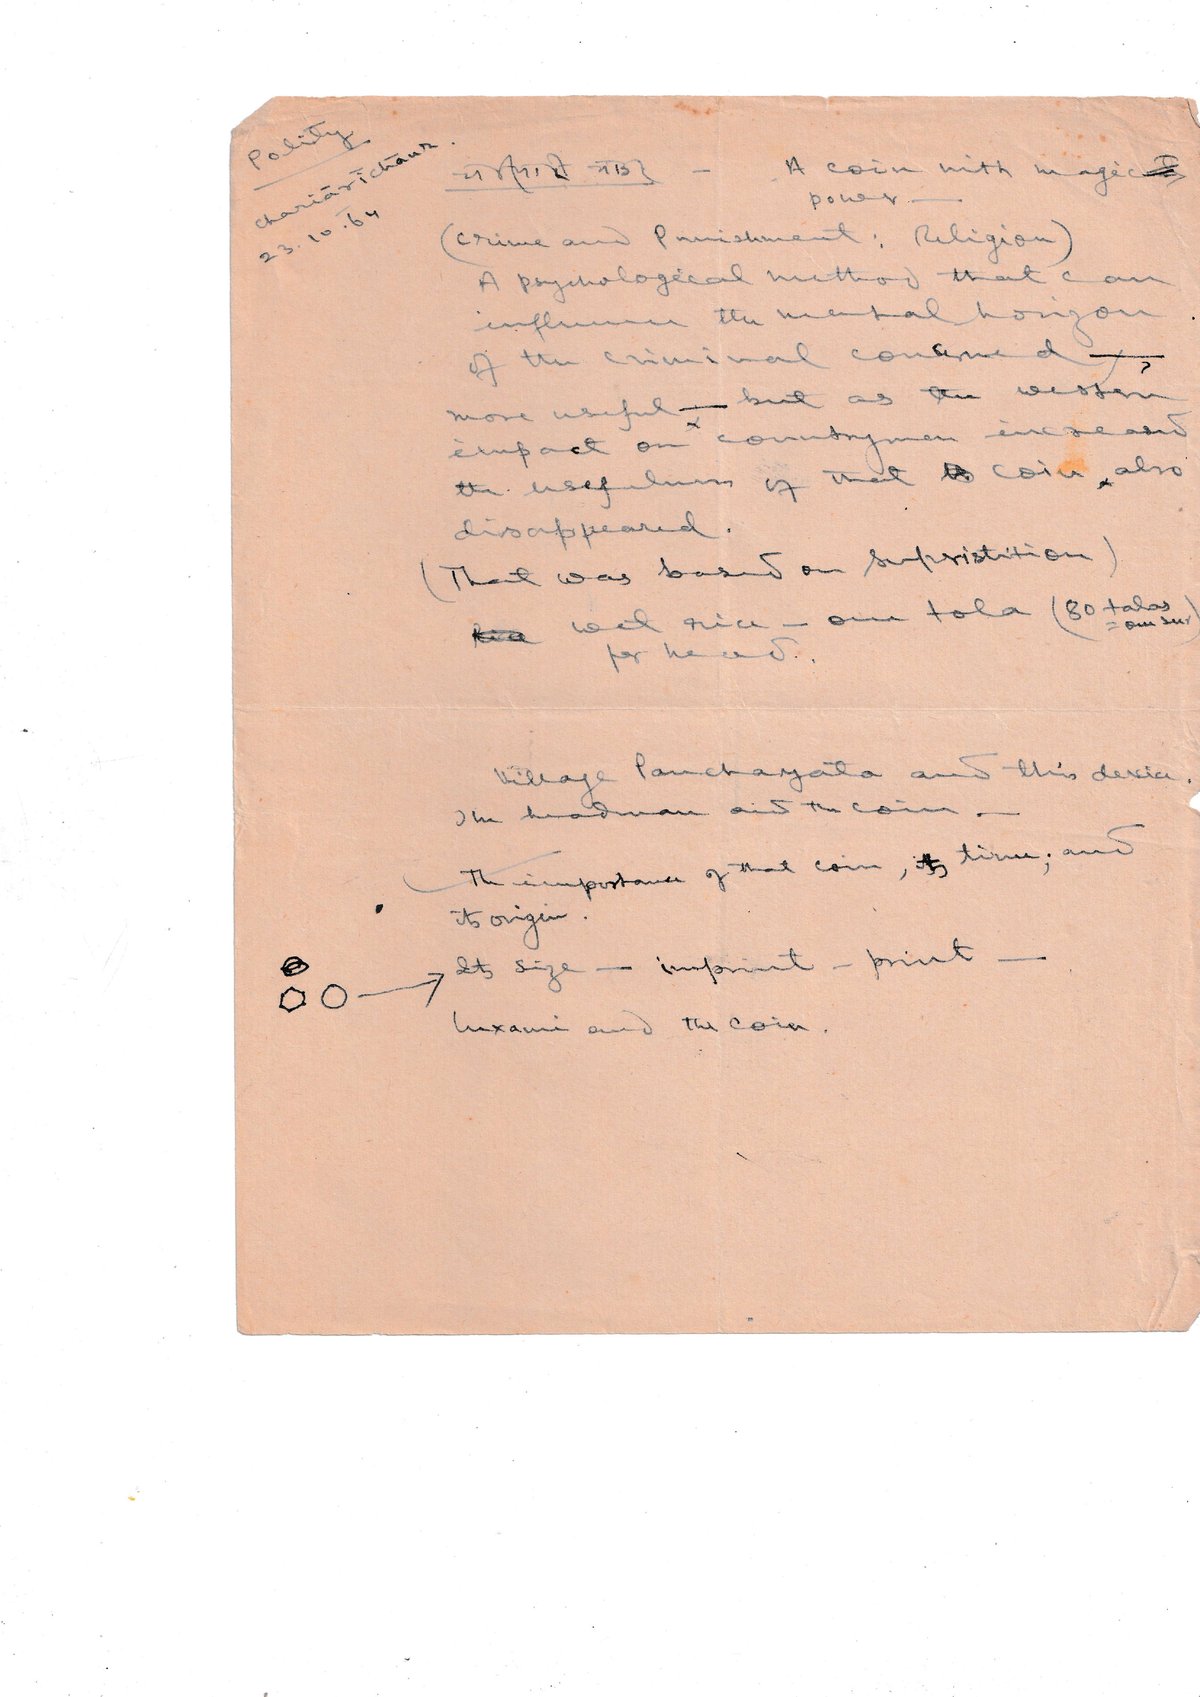 Polity
23.10.64
— A coin with magic
power —
(Crime and Punishment; Religion)
A psychological method that can
influence the mental horizon
of the criminal concerned —
more useful — but as the western
impact on countrymen increased
the usefulness of that coin, also
disappeared.
(That was based on supristition)
wet rice — one tola (80 tolas
= one seer)
per head.
Village Panchayata and this device.
The headman and the coin —
The importance of that coin, its time; and
its origin.
Its size — imprint — print —
Luxami and the coin.